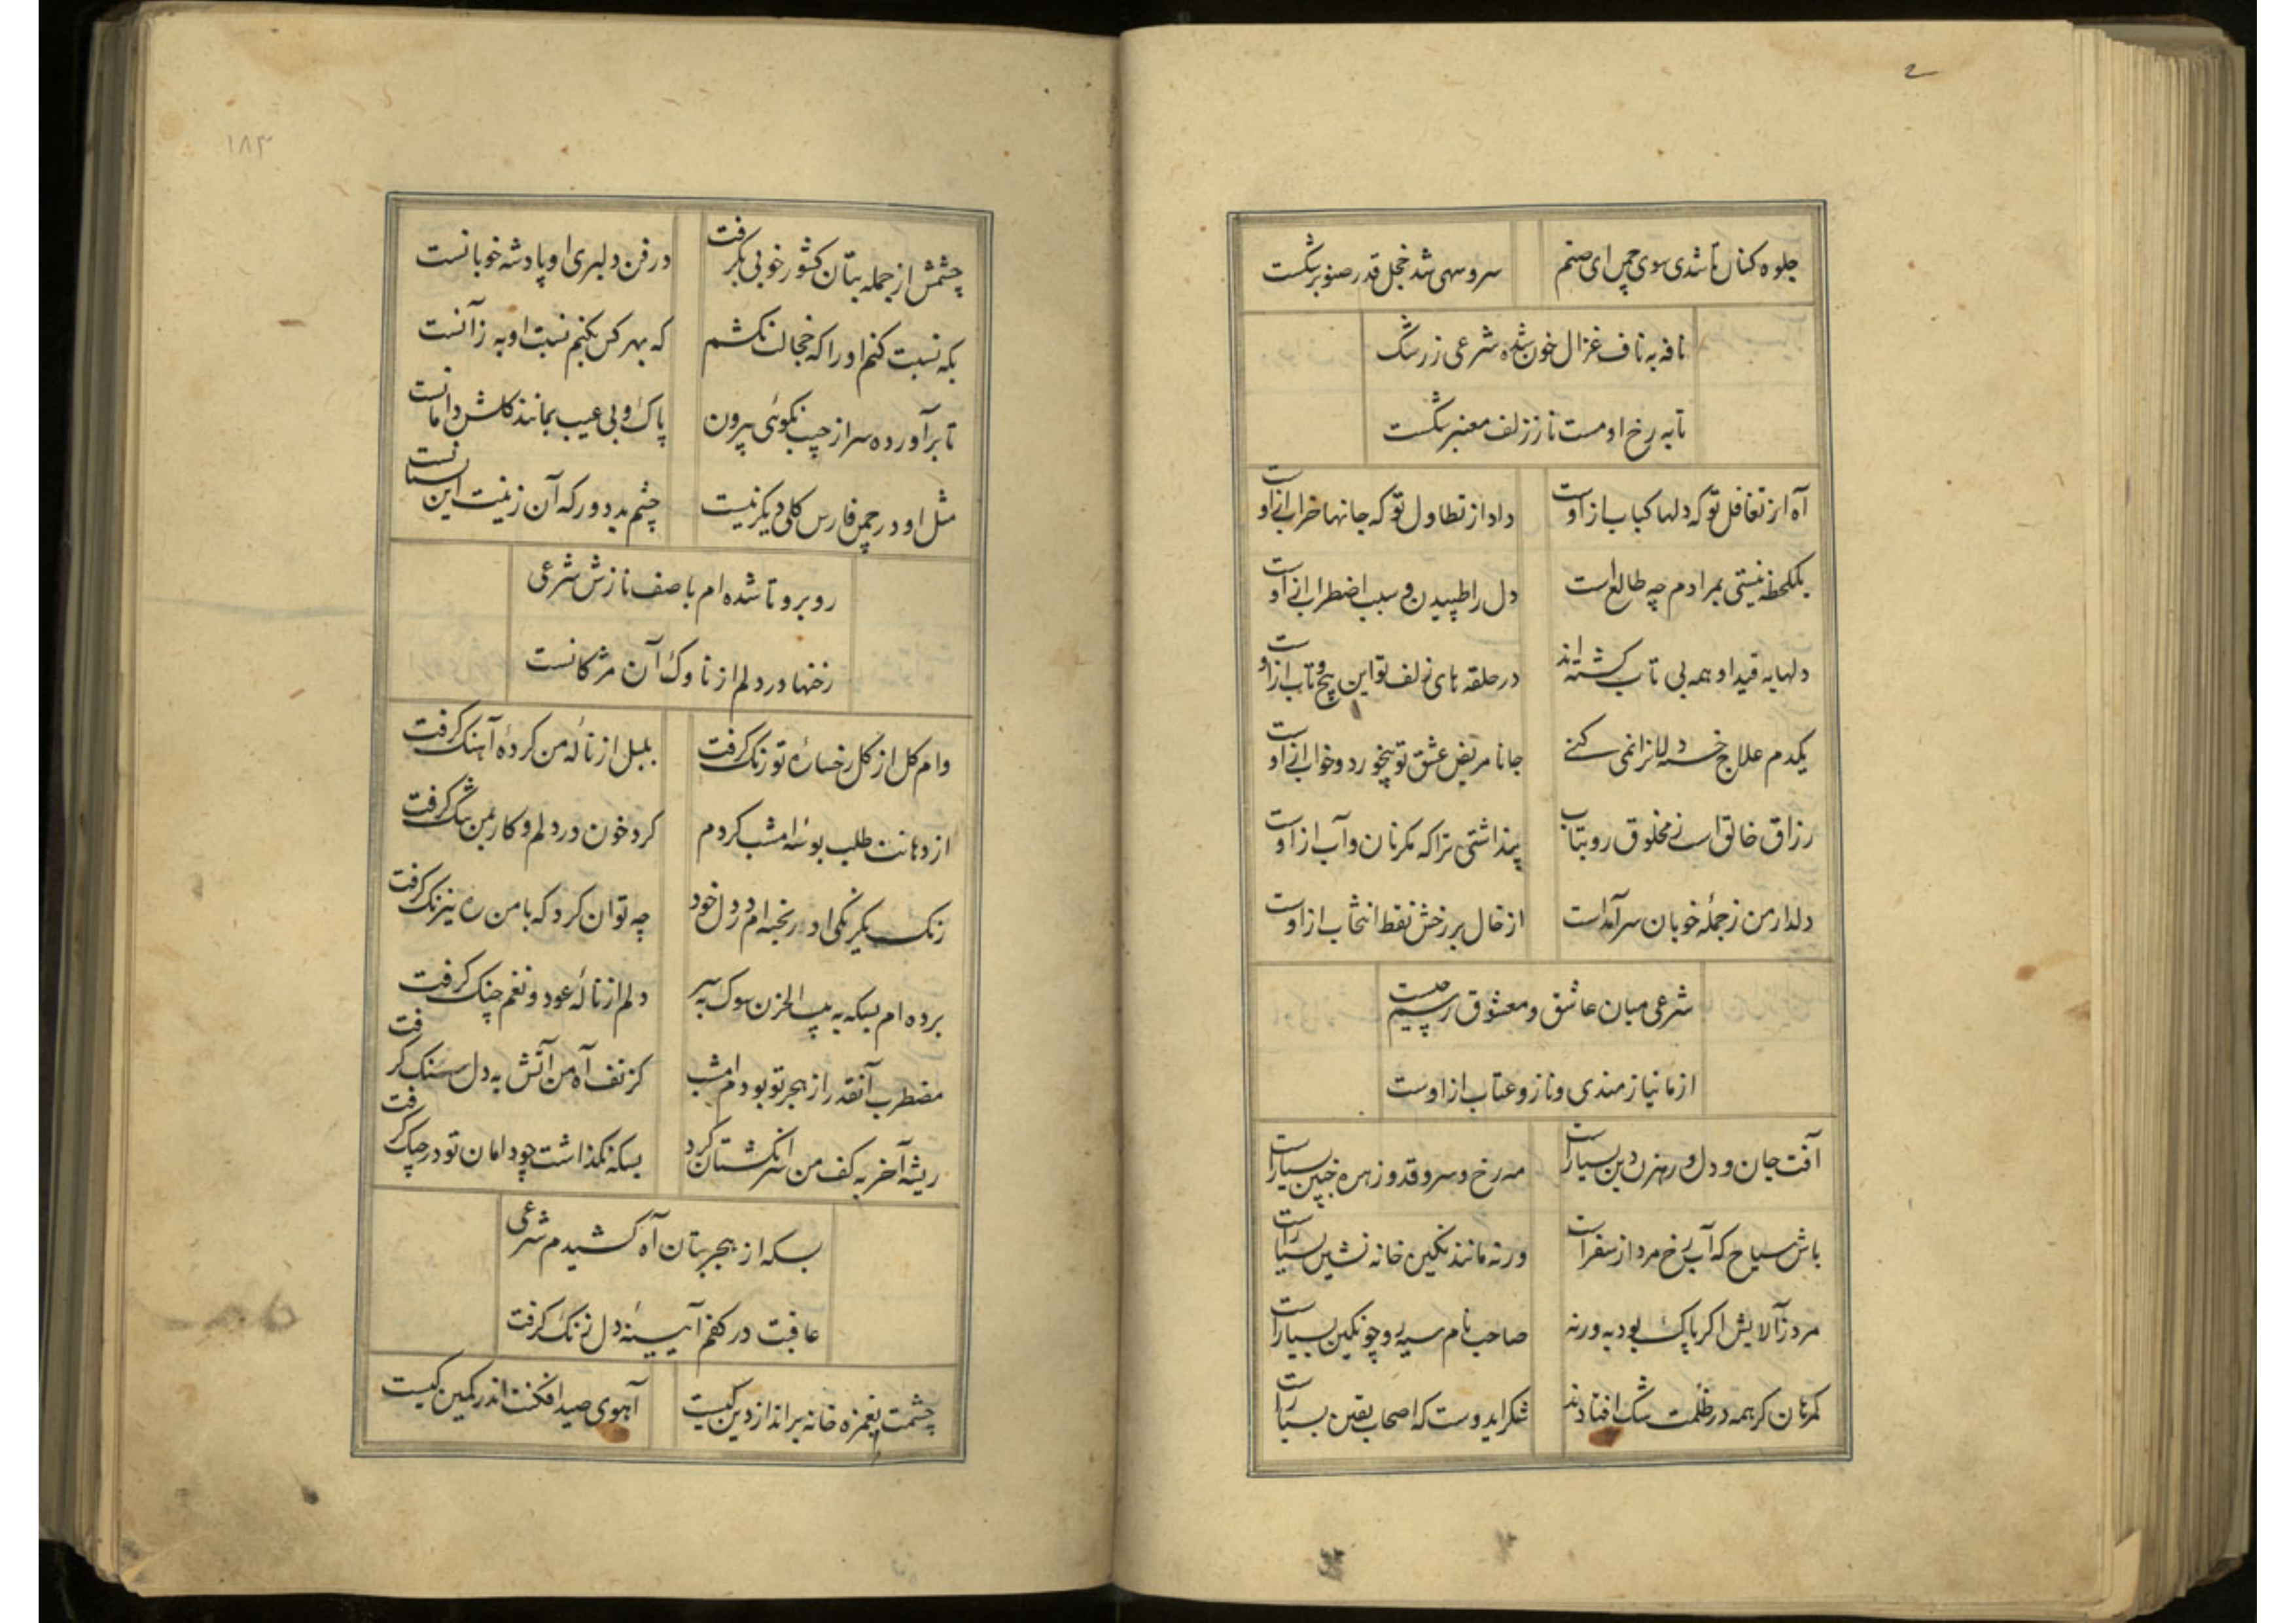 جلوه کنان تا شدی سوی چمن ای صنم سرو سهی شد خجل قدر صنوبر شکست
نافه به ناف غزال خون شده شرعی ز رشک
تا به رخ او مست ناز زلف معنبر شکست
آه از تغافل تو که دلها کباب از اوست داد از تطاول تو که جانها خراب از اوست
یکلحظه نیستی بمرادم چه طالع است دل را طپیدن و سبب اضطراب از اوست
دلها به قید او همه بی تاب کشته اند در حلقه های زلف تو این پیچ و تاب از اوست
یکدم علاج خسته دلانرا نمی کنی جانا مریض عشق تو بیخورد و خواب از اوست
رزاق خالق است ز مخلوق رو بتاب پنداشتی تراکه مکر نان و آب از اوست
دلدار من ز جملهٔ خوبان سرآمد است از خال بر رخش نقط انتخاب از اوست
شرعی میان عاشق و معشوق رسم چیست
از ما نیازمندی و ناز و عتاب از اوست
آفت جان و دل و رهزن دین بسیار است مه رخ و سرو قد و زهره جبین بسیار است
باش سیاح که آب رخ مرد از سفر است ورنه مانند نکین خانه نشین بسیار است
مرد ز آلایش اکر پاک بود به ورنه صاحب نام سیه رو چو نکین بسیار است
کمرهان کر همه در ظلمت شک افتادند شکر ایدوست که اصحاب یقین بسیار است
۱۸۳
چشمش از جمله بتان کشور خوبی بکرفت در فن دلبری او پادشه خوبانست
بکه نسبت کنم او را که خجالت نکشم که بهر کس بکنم نسبت او به ز آنست
تا برآورده سر از جیب نکوئی بیرون پاک و بی عیب بمانند کلش دامانست
مثل او در چمن فارس کلی دیکر نیست چشم بد دور که آن زینت این بستانست
روبرو تا شده ام با صف نازش شرعی
رخنها در دلم از ناوک آن مژکانست
وام کل از کل رخسارهٔ تو رنک کرفت بلبل از نالهٔ من کرده آهنک کرفت
از دهانت طلب بوسهٔ امشب کردم کرد خون در دلم و کار بمن تنک کرفت
رنک یکرنکی او ریخته ام در دل خود چه توان کرد که با من ره نیرنک کرفت
برده ام بسکه به بیت الحزن سوک به سر دلم از نالهٔ عود و نغم چنک کرفت
مضطرب آنقدر از هجر تو بودم امشب کز تف آه من آتش به دل سنک کرفت
ریشه آخر به کف من سر انکشتان کرد بسکه نکذاشت چو دامان تو در چنک کرفت
بسکه از هجر بتان آه کشیدم شرعی
عاقبت در کفم آیینهٔ دل زنک کرفت
چشمت بغمزه خانه برانداز دین کیست آهوی صید افکنت اندر کمین کیست